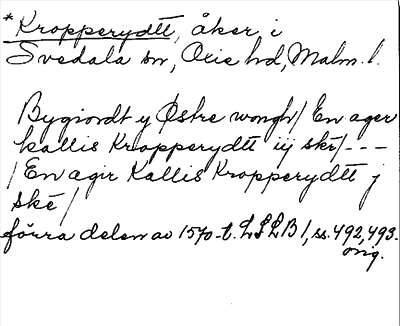 *Kropperydtt, åker, i
Svedala sn, Oxie hd, Malm. l.
Bygiordt y Østre wongh / En ager
kallis Kropperydtt iij skē / ---
/ En agir Kallis Kropperydtt j
skē /
förra delen av 1570-t. LSLB 1, ss. 492, 493.
orig.